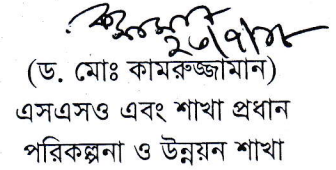 (ড. মোঃ কামরুজ্জামান)
এসএসও এবং শাখা প্রধান
পরিকল্পনা ও উন্নয়ন শাখা